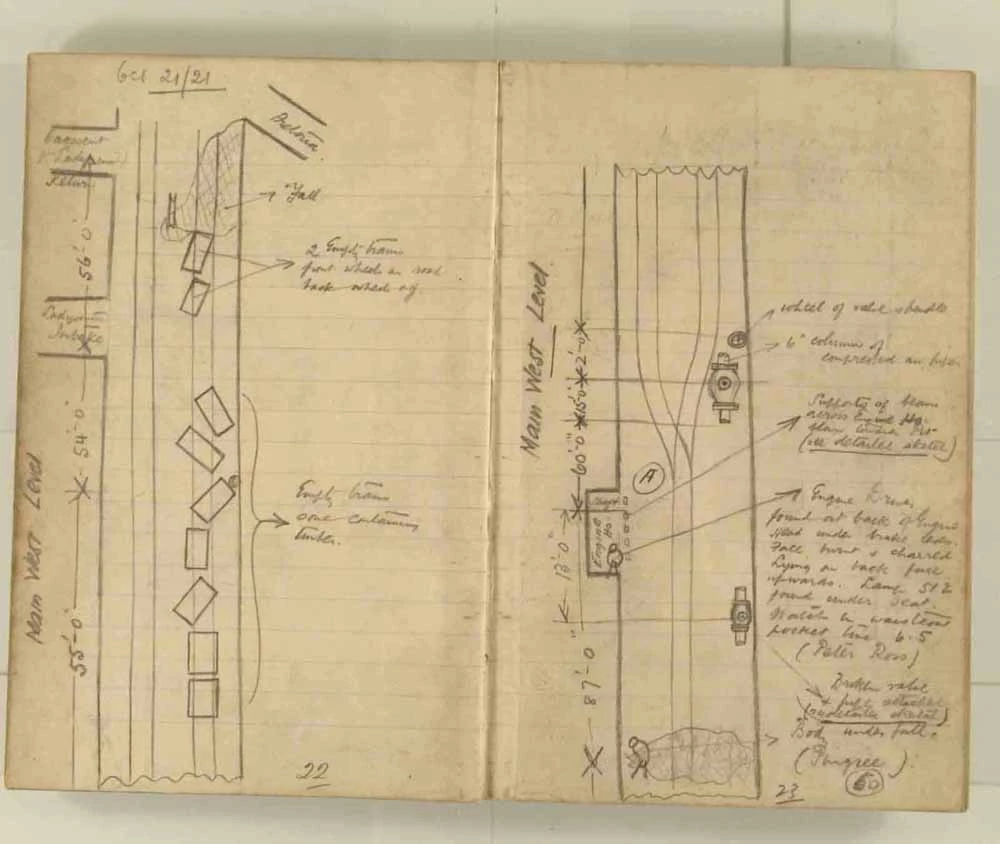 Oct 21/21
Return
56'-0"
54'-0"
55'-0"
Main West Level
Fall
2 Empty trams
front wheels on road
back wheels off
Empty trams
some containing
timber.
22
Main West Level
2'-0"
15'-0"
60'-0"
13'-0"
87'-0"
A
Engine Ho.
wheel of valve & handle
6" column of
compressed air pipes
Supports of beams
across Engine Ho.
(see detailed sketch)
Engine Driver
found at back of Engine
Head under brake lever.
Face burnt & charred
Lying on back face
upwards. Lamp 512
found under seat.
Watch in waistcoat
pocket time 6.5
(Peter Ross)
Broken valve
& pipe attached
(see detailed sketch)
Body under fall.
(Pungree)
60
23